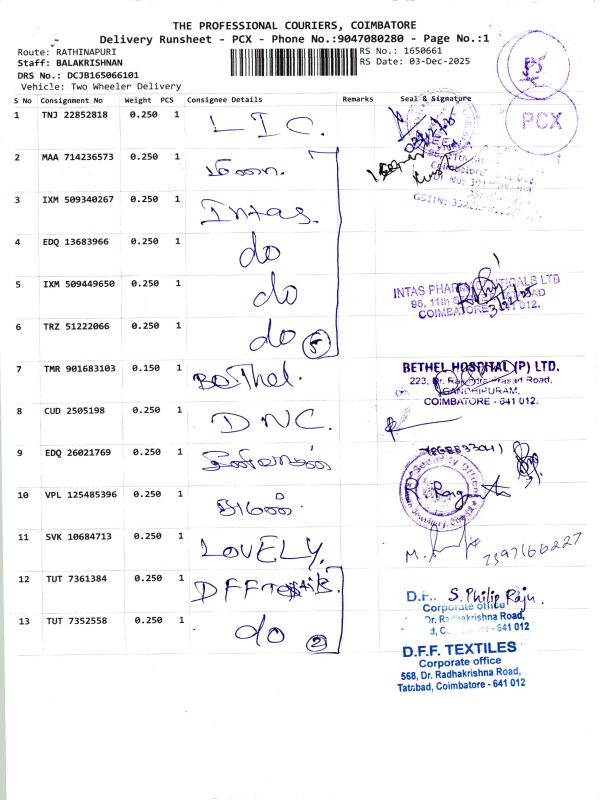 THE PROFESSIONAL COURIERS, COIMBATORE
Delivery Runsheet - PCX - Phone No.:9047080280 - Page No.:1
Route: RATHINAPURI
RS No.: 1650661
Staff: BALAKRISHNAN
RS Date: 03-Dec-2025
DRS No.: DCJB165066101
Vehicle: Two Wheeler Delivery
PCX
S No Consignment No Weight PCS Consignee Details Remarks Seal & Signature
1 TNJ 22852818 0.250 1 LIC.
2 MAA 714236573 0.250 1
3 IXM 509340267 0.250 1 Intas.
4 EDQ 13683966 0.250 1 do
5 IXM 509449650 0.250 1 do
INTAS PHARMACEUTICALS LTD
COIMBATORE 641 012.
6 TRZ 51222066 0.250 1 do 5
7 TMR 901683103 0.150 1 BeThel.
BETHEL HOSPITAL (P) LTD.
223, Dr. Rajendra Prasad Road,
GANDHIPURAM,
COIMBATORE - 641 012.
8 CUD 2505198 0.250 1 DNC.
9 EDQ 26021769 0.250 1
10 VPL 125485396 0.250 1
11 SVK 10684713 0.250 1 LOVELY.
2397166227
12 TUT 7361384 0.250 1
D.F. S. Philip Raju.
Corporate office
Dr. Radhakrishna Road,
641 012
13 TUT 7352558 0.250 1 do 2
D.F.F. TEXTILES
Corporate office
568, Dr. Radhakrishna Road,
Tatabad, Coimbatore - 641 012